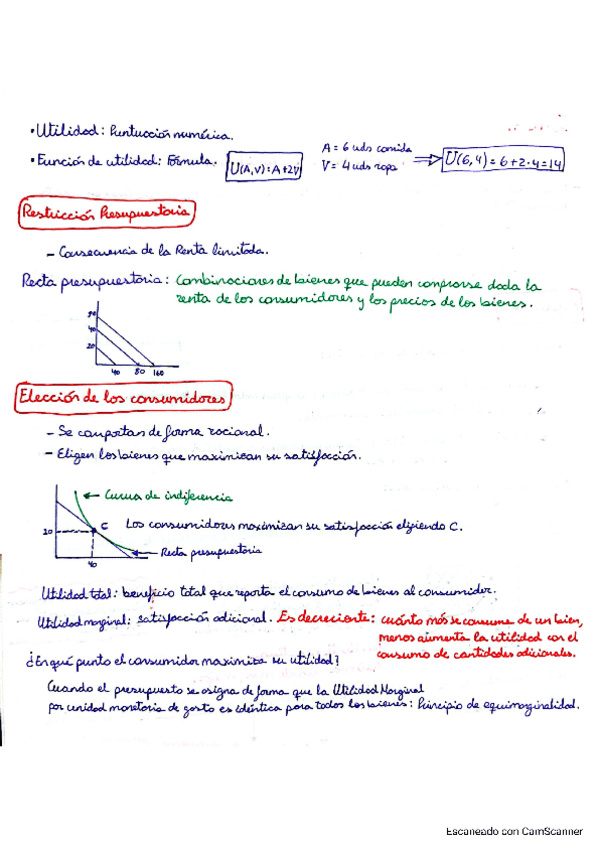 • Utilidad: Puntuación numérica.
• Función de utilidad: Fórmula. U(A,V)=A+2V
A = 6 uds comida
V = 4 uds ropa
⇒ U(6,4) = 6+2·4=14
Restricción Presupuestaria
- Consecuencia de la Renta limitada.
Recta presupuestaria: Combinaciones de bienes que pueden comprarse dada la
renta de los consumidores y los precios de los bienes.
40
20
40 80 160
Elección de los consumidores
- Se comportan de forma racional.
- Eligen los bienes que maximizan su satisfacción.
← Curva de indiferencia
20
C
Los consumidores maximizan su satisfacción eligiendo C.
← Recta presupuestaria
40
Utilidad total: beneficio total que reporta el consumo de bienes al consumidor.
Utilidad marginal: satisfacción adicional. Es decreciente: cuánto más se consume de un bien,
menos aumenta la utilidad con el
consumo de cantidades adicionales.
¿En qué punto el consumidor maximiza su utilidad?
Cuando el presupuesto se asigna de forma que la Utilidad Marginal
por unidad monetaria de gasto es idéntica para todos los bienes: Principio de equimarginalidad.
Escaneado con CamScanner